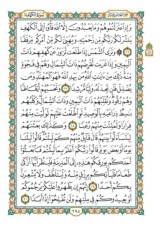 سورة الكهف
وإذ اعتزلتموهم وما يعبدون إلا الله فأووا إلى الكهف
ينشر لكم ربكم من رحمته ويهيئ لكم من أمركم مرفقا
وترى الشمس إذا طلعت تزاور عن كهفهم ذات
اليمين وإذا غربت تقرضهم ذات الشمال وهم في فجوة
منه ذلك من آيات الله من يهد الله فهو المهتد ومن
يضلل فلن تجد له وليا مرشدا وتحسبهم أيقاظا
وهم رقود ونقلبهم ذات اليمين وذات الشمال
وكلبهم باسط ذراعيه بالوصيد لو اطلعت عليهم لوليت
منهم فرارا ولملئت منهم رعبا وكذلك بعثناهم
ليتساءلوا بينهم قال قائل منهم كم لبثتم قالوا لبثنا يوما
أو بعض يوم قالوا ربكم أعلم بما لبثتم فابعثوا
أحدكم بورقكم هذه إلى المدينة فلينظر أيها أزكى
طعاما فليأتكم برزق منه وليتلطف ولا يشعرن
بكم أحدا إنهم إن يظهروا عليكم يرجموكم
أو يعيدوكم في ملتهم ولن تفلحوا إذا أبدا